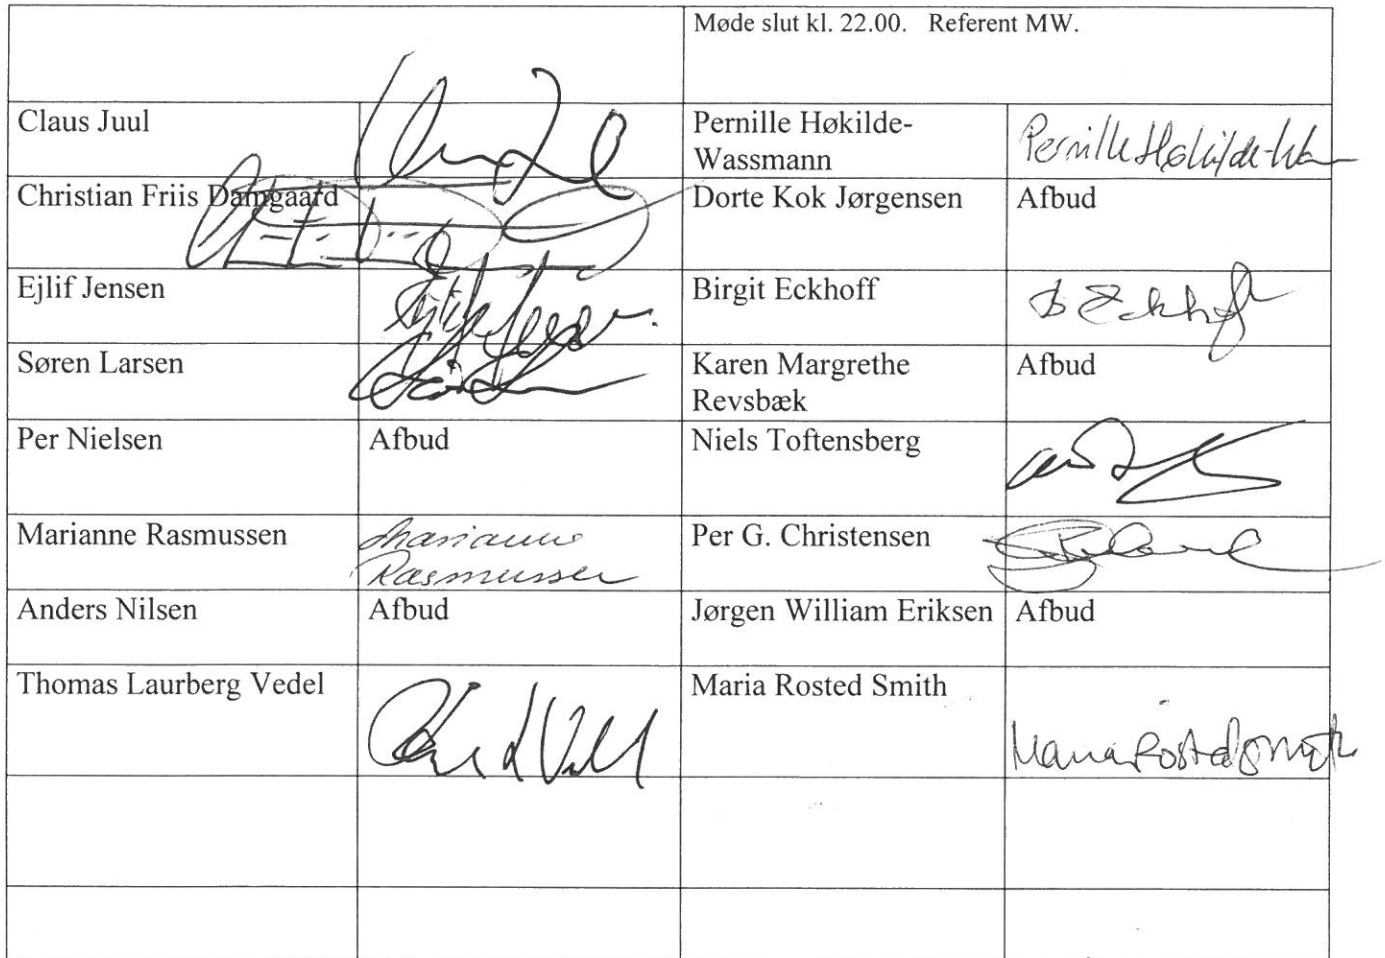 Møde slut kl. 22.00. Referent MW.
Claus Juul
Pernille Høkilde-
Wassmann
Pernille Høkilde-Wa
Christian Friis Damgaard
Dorte Kok Jørgensen
Afbud
Ejlif Jensen
Ejlif Jensen.
Birgit Eckhoff
B Eckhoff
Søren Larsen
Karen Margrethe
Revsbæk
Afbud
Per Nielsen
Afbud
Niels Toftensberg
Marianne Rasmussen
Marianne
Rasmussen
Per G. Christensen
Anders Nilsen
Afbud
Jørgen William Eriksen
Afbud
Thomas Laurberg Vedel
Maria Rosted Smith
Maria Rosted Smith